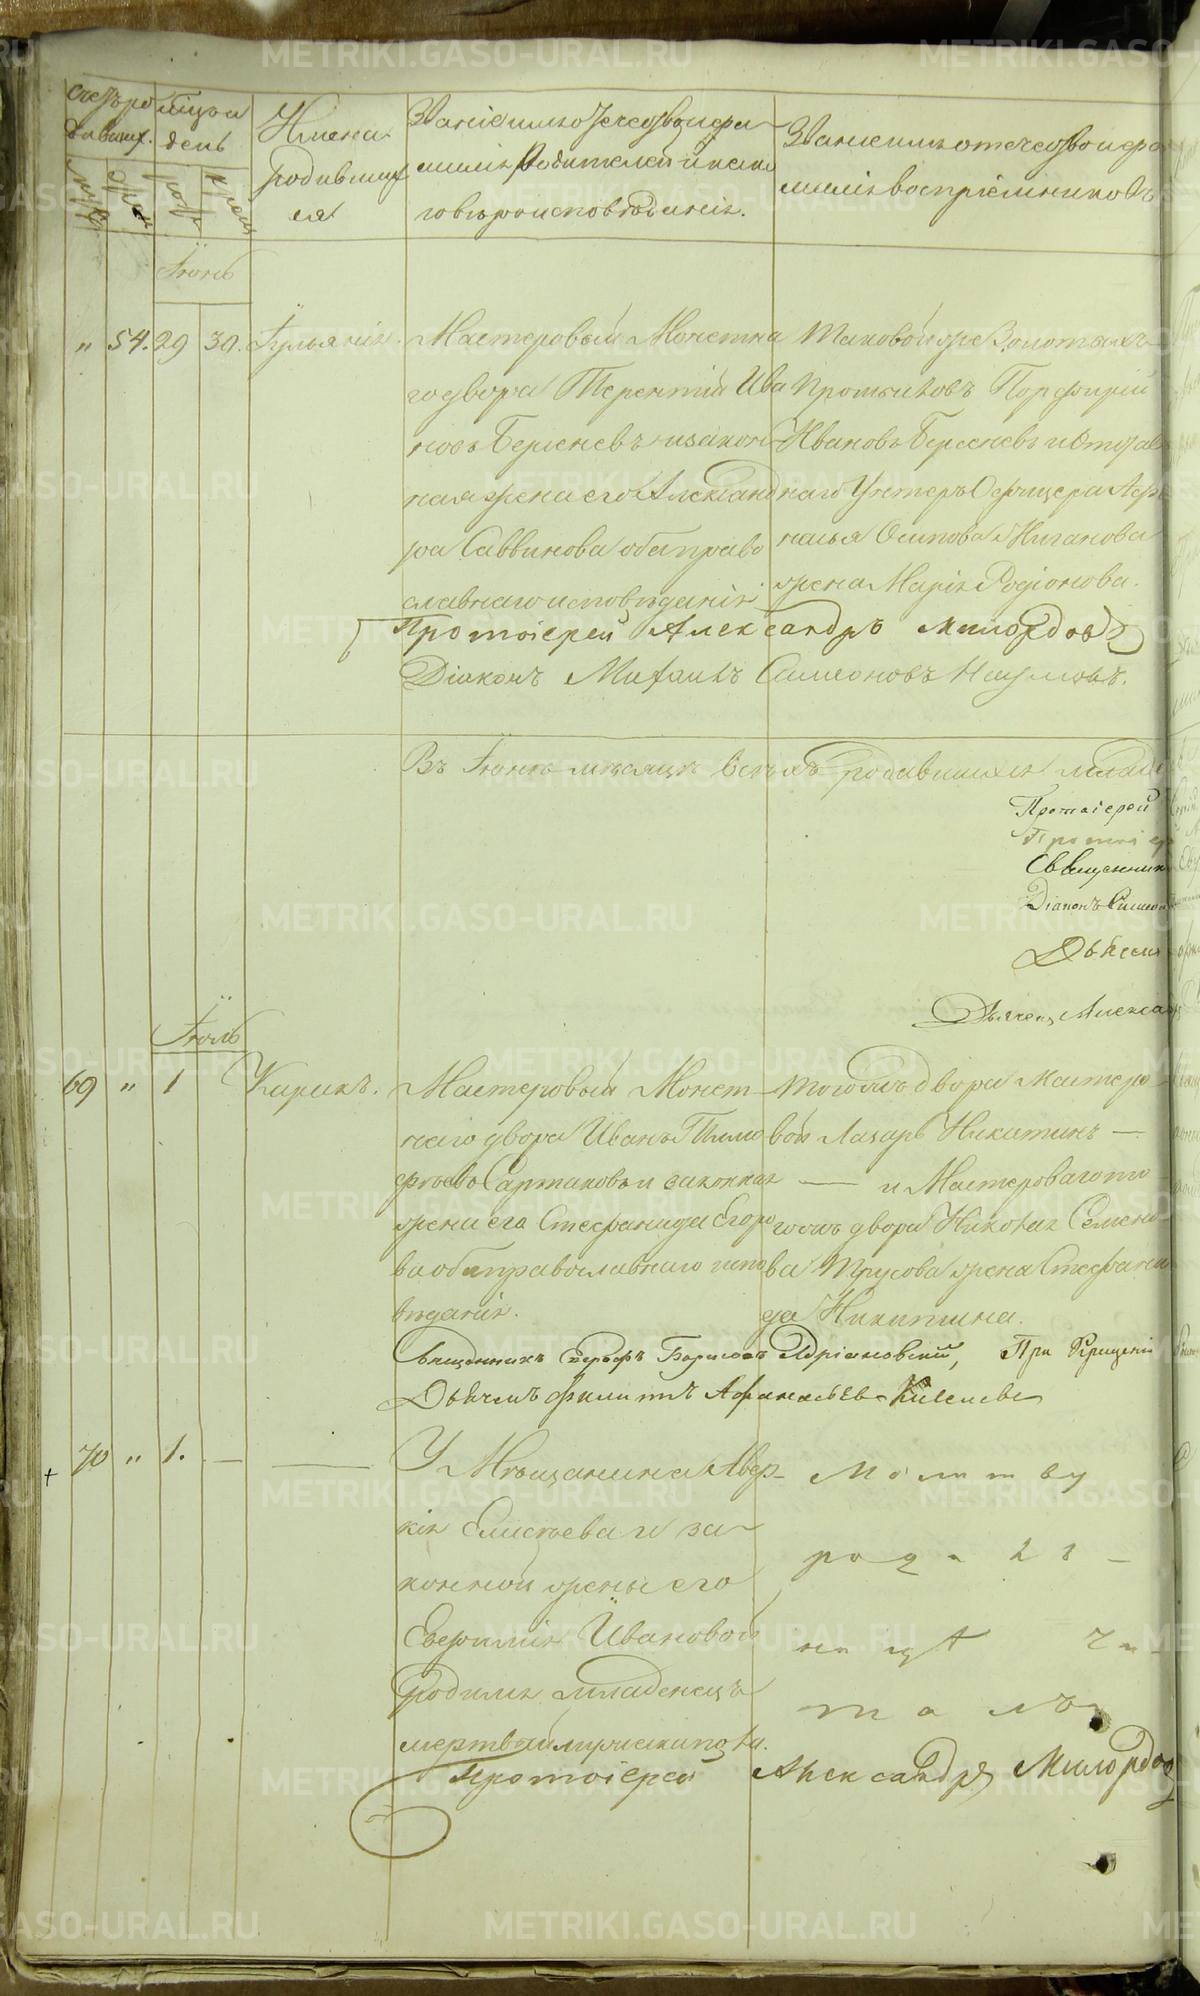 Счетъ ро
дивших.
Мѣсяцъ и
день
Имена
родивших
ся.
Званіе имя отечество и фа
милія Родителей и како
го вѣроисповѣданія.
Званіе имя отечество и фа
милія воспріемниковъ
Іюнь
" 54. 29 30. Іуліанія.
Мастеровый Монетна
го двора Терентій Ива
новъ Берсеневъ и закон
ная жена его Александ
ра Саввинова оба право
славнаго исповѣданія
Таковой же Золотыхъ
Промысловъ Порфирій
Ивановъ Берсеневъ и Отстав
наго Унтеръ Офицера
Осипова
жена Марія Родіонова.
Протоіерей Александръ Милордовъ
Діаконъ Михаилъ Симеоновъ Наумовъ.
Въ Іюнѣ мѣсяцѣ всѣхъ родившихся млад
Протоіерей
Протоіер
Священник
Діаконъ Симео
Дьячек Алекса
Іюль
69 " 1 Кирикъ.
Мастеровый Монет
наго двора Иванъ Тимо
фѣевъ Сартаковъ и законная
жена его Стефанида Егоро
ва оба православнаго испо
вѣданія.
тогожъ двора Мастеро
вой Лазарь Никитинъ —
— и Мастероваго то
гожъ двора Николая Семено
ва Трусова жена Стефани
да Никитина.
Священникъ Борисовъ Адріановскій, При Крещеніи
Дьячекъ Филиппъ Афанасьевъ Киселевъ
+ 70 " 1. — —
У Мѣщанина Авер
кія Елисѣева и за
конной жены его
Евфиміи Ивановой
родился младенецъ
мертвый мужеска пола.
Молитву
роди
ницѣ чи
талъ
Протоіерей Александръ Милордовъ
METRIKI.GASO-URAL.RU